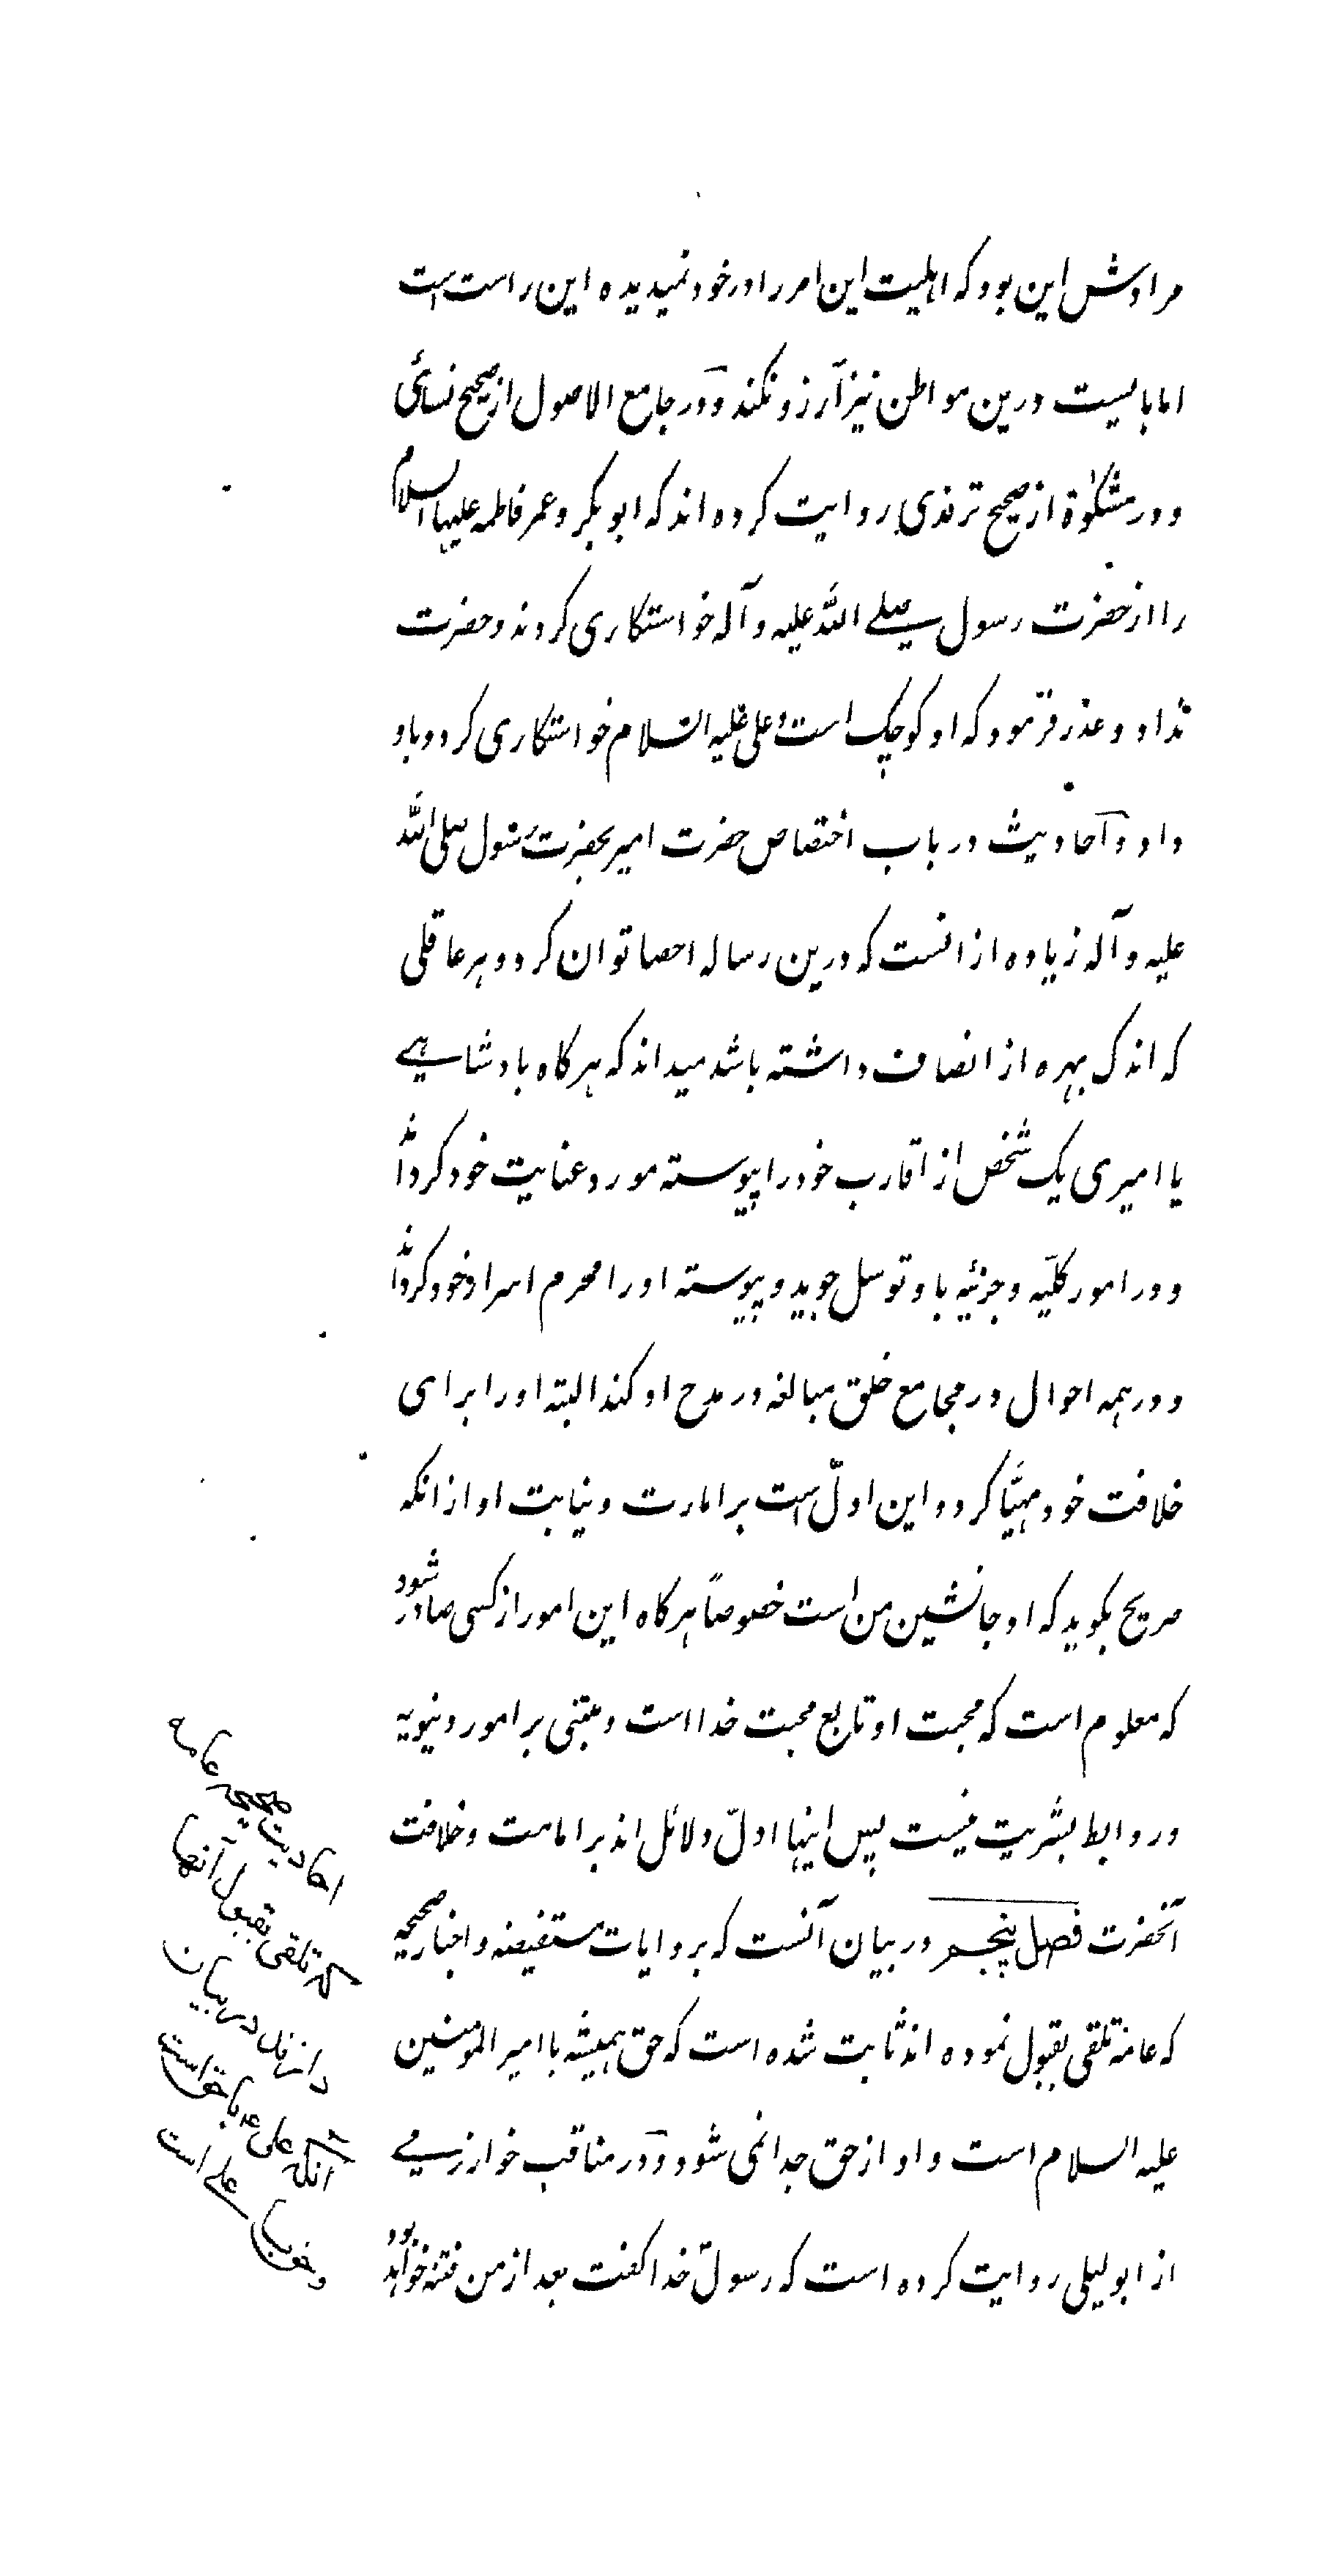 مرادش این بود که اهلیت این امر را در خود نمیدیده این راست است
اما بایست درین مواطن نیز آرزو نکند و در جامع الاصول از صحیح نسائی
و در مشکوٰة از صحیح ترمذی روایت کرده اند که ابو بکر و عمر فاطمه علیها السلام
را از حضرت رسول صلے الله علیه و آله خواستکاری کردند و حضرت
نداد و عذر فرمود که او کوچک است و علی علیه السلام خواستکاری کرد و باو
داد و آحادیث در باب اختصاص حضرت امیر بحضرت رسول صلی الله
علیه و آله زیاده از انست که درین رساله احصا توان کرد و هر عاقلی
که اندک بهره از انصاف داشته باشد میداند که هرکاه بادشاهے
یا امیری یک شخص از اقارب خود را پیوسته مورد عنایت خود کرداند
و در امور کلّیه و جزئیه باو توسل جوید و پیوسته او را محرم اسرار خود کرداند
و در همه احوال در مجامع خلق مبالغه در مدح او کند البته او را برای
خلافت خود مهیّا کرده و این ادلّ است بر امارت و نیابت او از انکه
صریح بکوید که او جانشین من است خصوصاً هرکاه این امور از کسی صادر شود
که معلوم است که محبت او تابع محبت خدا است و مبتنی بر امور دنیویه
و روابط بشریت نیست پس اینها ادلّ دلائل اند بر امامت و خلافت
آنحضرت فصل پنجم در بیان آنست که بروایات مستفیضه و اخبار صحیحه
که عامه تلقی بقبول نموده اند ثابت شده است که حق همیشه با امیر المومنین
علیه السلام است و او از حق جدا نمی شود و در مناقب خوارزمے
از ابو لیلی روایت کرده است که رسول خدا کفت بعد از من فتنه خواهد بود
احادیث صحیحه عامه
که تلقی بقبول آنها
دارند در بیان
آنکه علی ع باحق است
و حق با علی است